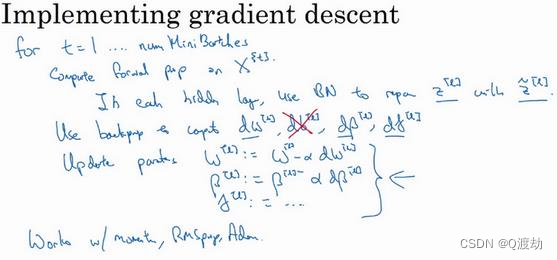 Implementing gradient descent
for t = 1 .... num MiniBatches
Compute forward prop on X^{t}.
In each hidden lay, use BN to repar z^[l] with z̃^[l].
Use backprop to compt dw^[l], db^[l], dβ^[l], dγ^[l]
Update parates w^[l] := w^[l] - α dw^[l]
β^[l] := β^[l] - α dβ^[l]
γ^[l] := ... ←
Works w/ momentu, RMSprop, Adam.
CSDN @Q渡劫